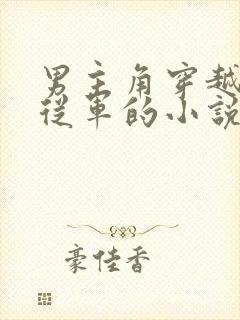 男主角穿越
從軍的小說
豪佳香